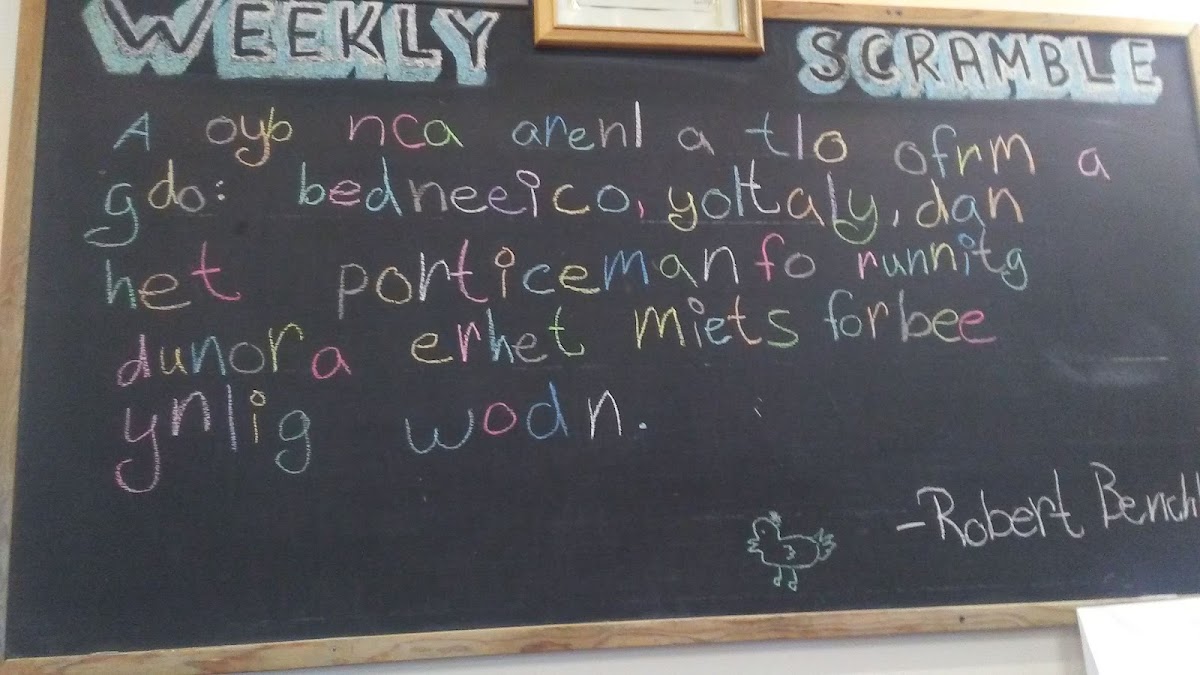 WEEKLY SCRAMBLE
A oyb nca arenl a tlo ofrm a
gdo: bedneeico, yoltaly, dan
het porhticeman fo runnitg
dunora erhet miets forbee
ynlig wodn.
-Robert Benchl